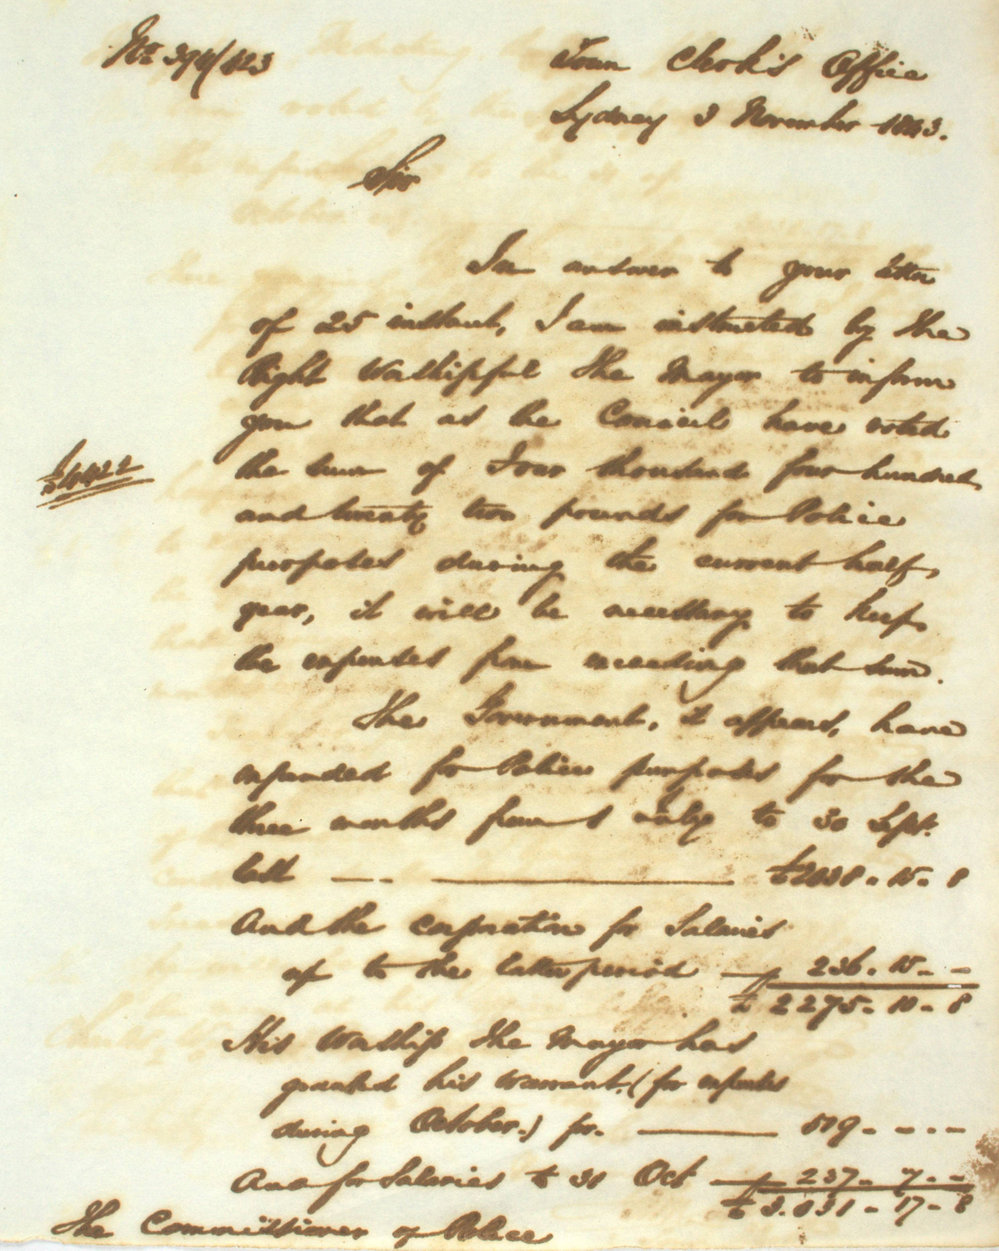 No 394/423
Town Clerk's Office
Sydney 3 November 1843.
Sir
In answer to your letter
of 25 instant, I am instructed by the
Right Worshipful the Mayor to inform
you that as the Council have voted
£4422
the sum of Four thousand four hundred
and twenty two pounds for Police
purposes during the current half
year, it will be necessary to keep
the expenses from exceeding that sum.
The Government, it appears, have
expended for Police purposes for the
three months from 1 July to 30 Sept.
last — £2038 - 15 - 8
And the corporation for Salaries
up to the latter period — 236 - 15 - -
£ 2275 - 10 - 8
His Worship the Mayor has
granted his warrant (for expenses
during October.) for. — 519 - - - -
And for Salaries to 31 Oct — 237 - 7 - -
£ 3.031 - 17 - 8
The Commissioner of Police